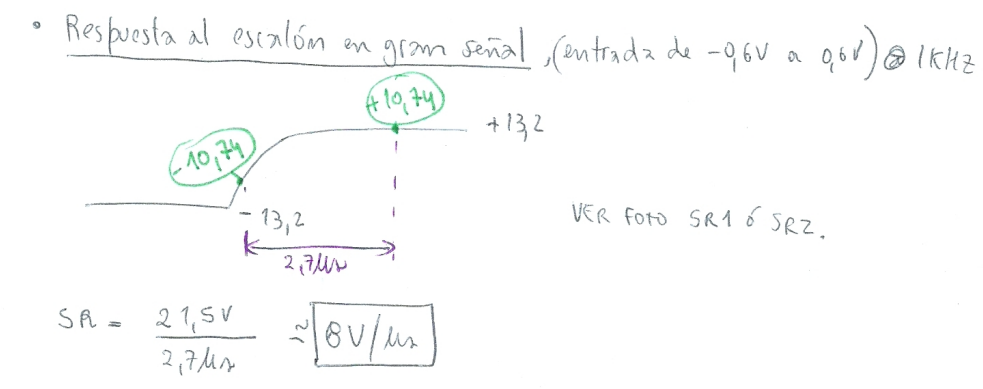 • Respuesta al escalón en gran señal, (entrada de -0,6V a 0,6V) @ 1KHz
+10,74
+13,2
-10,74
-13,2
VER FOTO SR1 ó SR2.
2,7µs
SR = 21,5V / 2,7µs ≈ 8V/µs